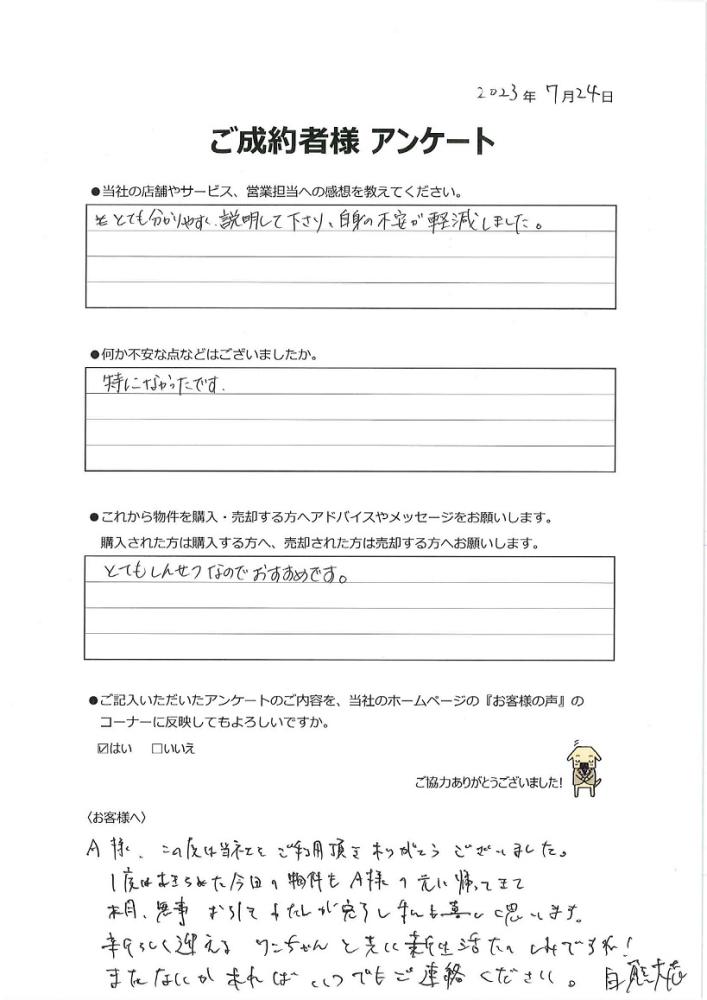 2023年 7月24日
ご成約者様 アンケート
●当社の店舗やサービス、営業担当への感想を教えてください。
とても分かりやすく、説明して下さり、自身の不安が軽減しました。
●何か不安な点などはございましたか。
特になかったです。
●これから物件を購入・売却する方へアドバイスやメッセージをお願いします。
購入された方は購入する方へ、売却された方は売却する方へお願いします。
とてもしんせつなのでおすすめです。
●ご記入いただいたアンケートのご内容を、当社のホームページの『お客様の声』の
コーナーに反映してもよろしいですか。
☑はい □いいえ
ご協力ありがとうございました!
〈お客様へ〉
A様、この度は当社をご利用頂きありがとうございました。
1度はあきらめた今回の物件もA様の元に帰ってきて
本日、無事お引きわたしが完了し私も喜しく思います。
新らしく迎えるワンちゃんと共に新生活たのしみですね!
またなにかあればいつでもご連絡ください。